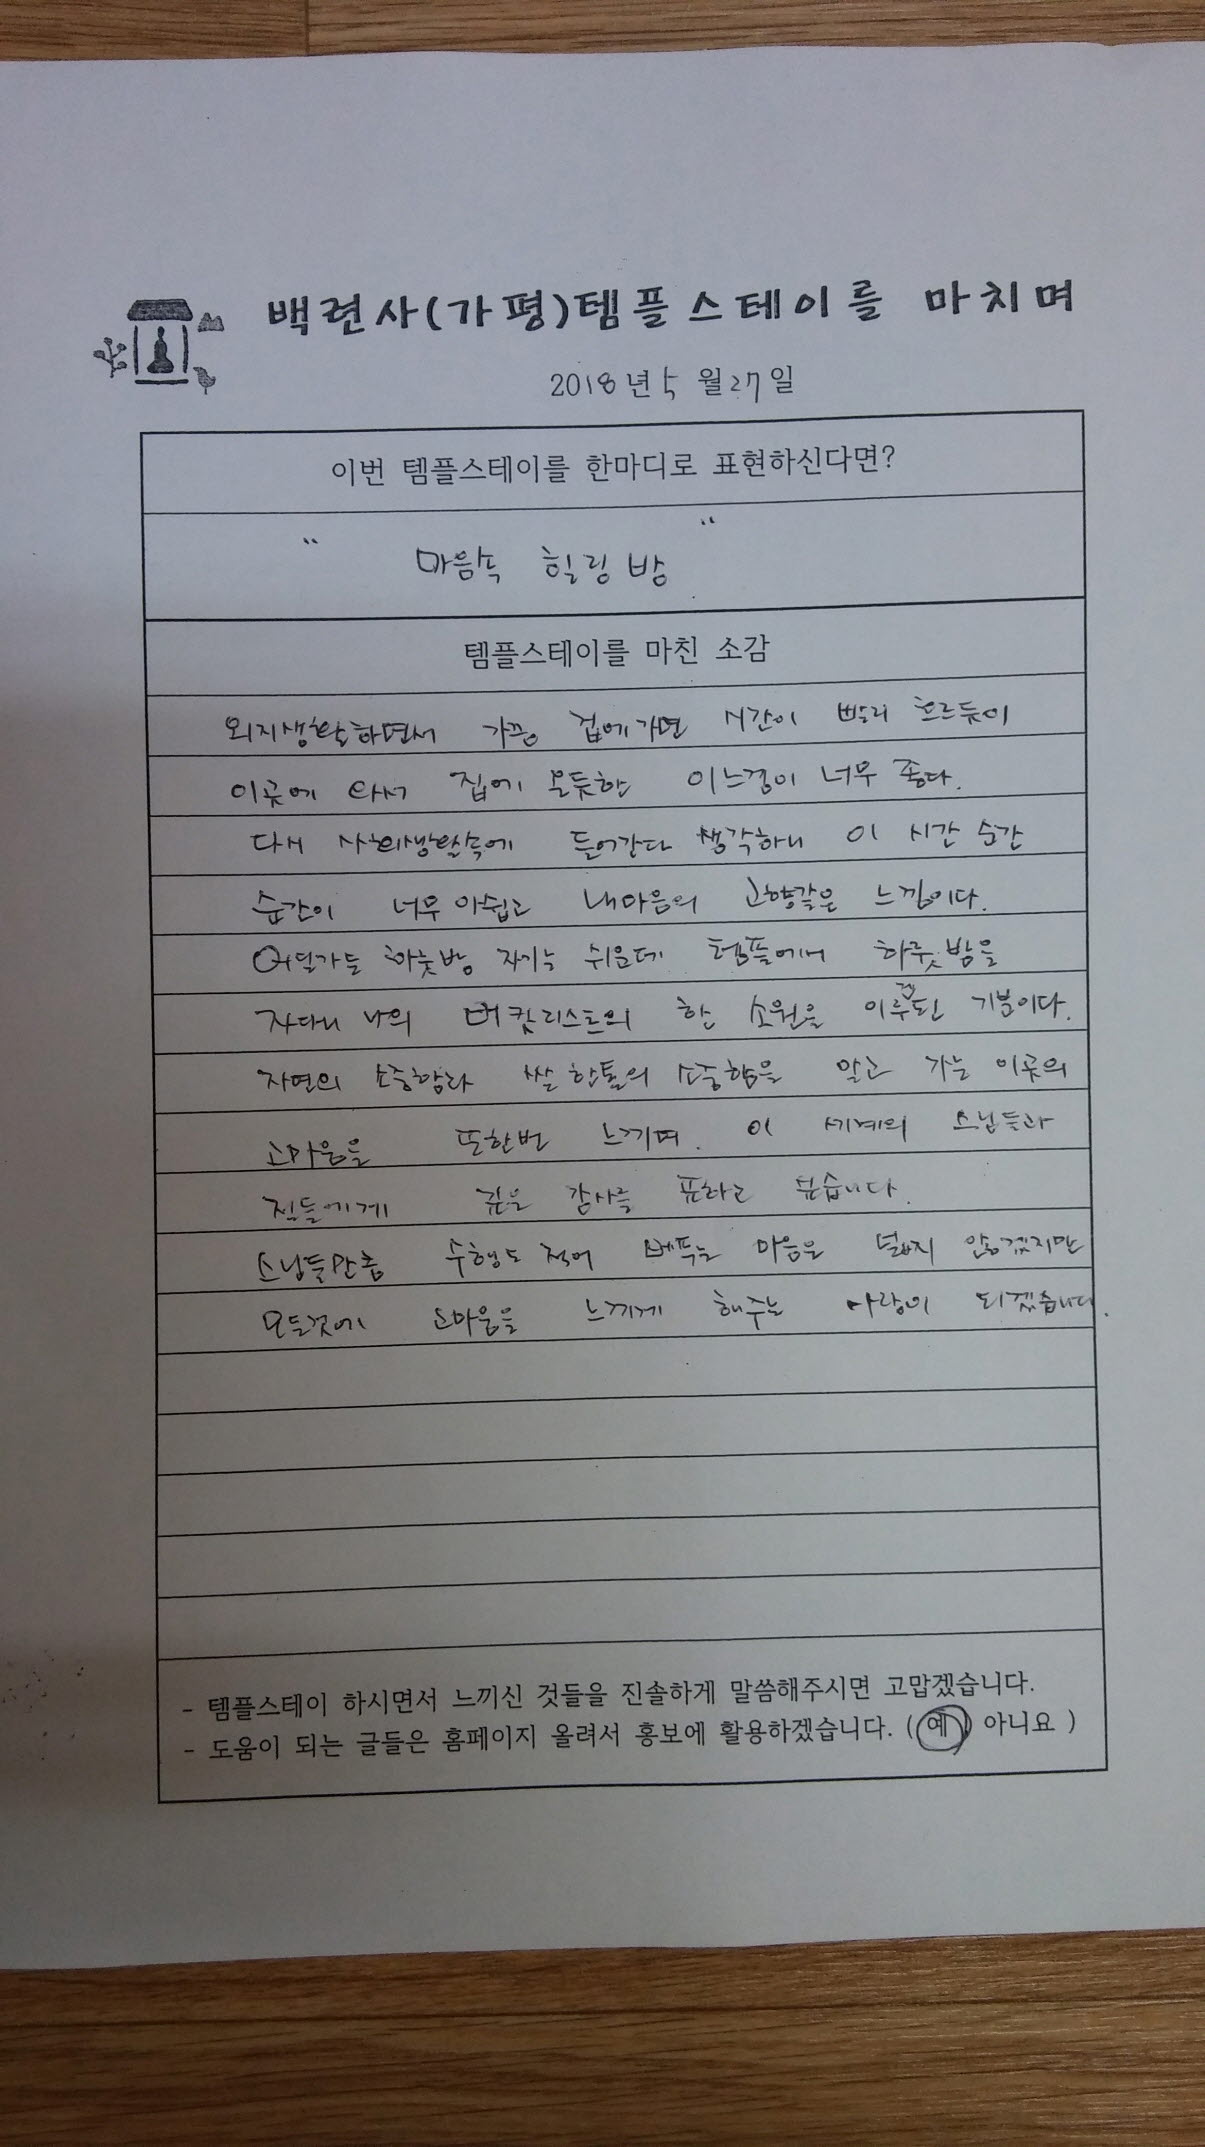 백련사(가평)템플스테이를 마치며
2018년 5월 27일
이번 템플스테이를 한마디로 표현하신다면?
" 마음속 힐링 밤 "
템플스테이를 마친 소감
외지생활하면서 가끔 집에가면 시간이 빨리 흐르듯이
이곳에 와서 집에 온듯한 이느낌이 너무 좋다.
다시 사회생활속에 들어간다 생각하니 이 시간 순간
순간이 너무 아쉽고 내마음의 고향같은 느낌이다.
어딜가든 하룻밤 자기는 쉬운데 템플에서 하룻밤을
자다니 나의 버킷리스트의 한 소원을 이루 된 기분이다.
자연의 소중함과 쌀 한톨의 소중함을 알고 가는 이곳의
고마움을 또한번 느끼며. 이 세계의 스님들과
집들에게 깊은 감사를 표하고 싶습니다.
스님들만큼 수행도 적어 베푸는 마음은 넓지 않겠지만
모든것에 고마움을 느끼게 해주는 사람이 되겠습니다.
- 템플스테이 하시면서 느끼신 것들을 진솔하게 말씀해주시면 고맙겠습니다.
- 도움이 되는 글들은 홈페이지 올려서 홍보에 활용하겠습니다. ( 예 아니요 )